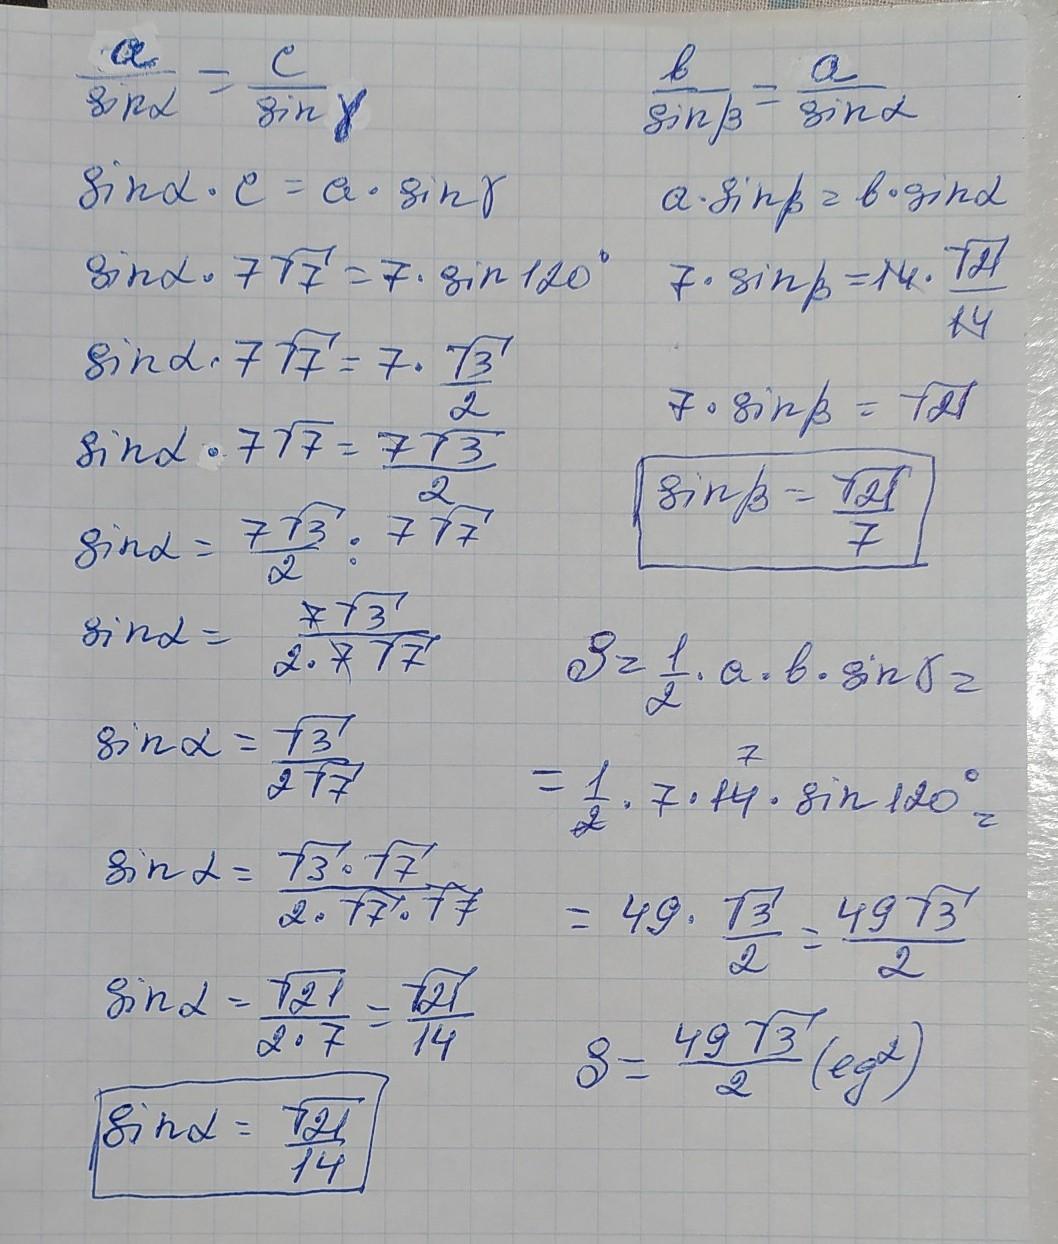 a/sinα = c/sinγ
sinα · c = a · sinγ
sinα · 7√7 = 7 · sin120°
sinα · 7√7 = 7 · √3/2
sinα · 7√7 = 7√3/2
sinα = 7√3/2 : 7√7
sinα = 7√3/2·7√7
sinα = √3/2√7
sinα = √3·√7/2·√7·√7
sinα = √21/2·7 = √21/14
sinα = √21/14
b/sinβ = a/sinα
a·sinβ = b·sinα
7·sinβ = 14·√21/14
7·sinβ = √21
sinβ = √21/7
S = 1/2 · a · b · sinγ =
7
= 1/2 · 7 · 14 · sin120° =
= 49 · √3/2 = 49√3/2
S = 49√3/2 (eg²)